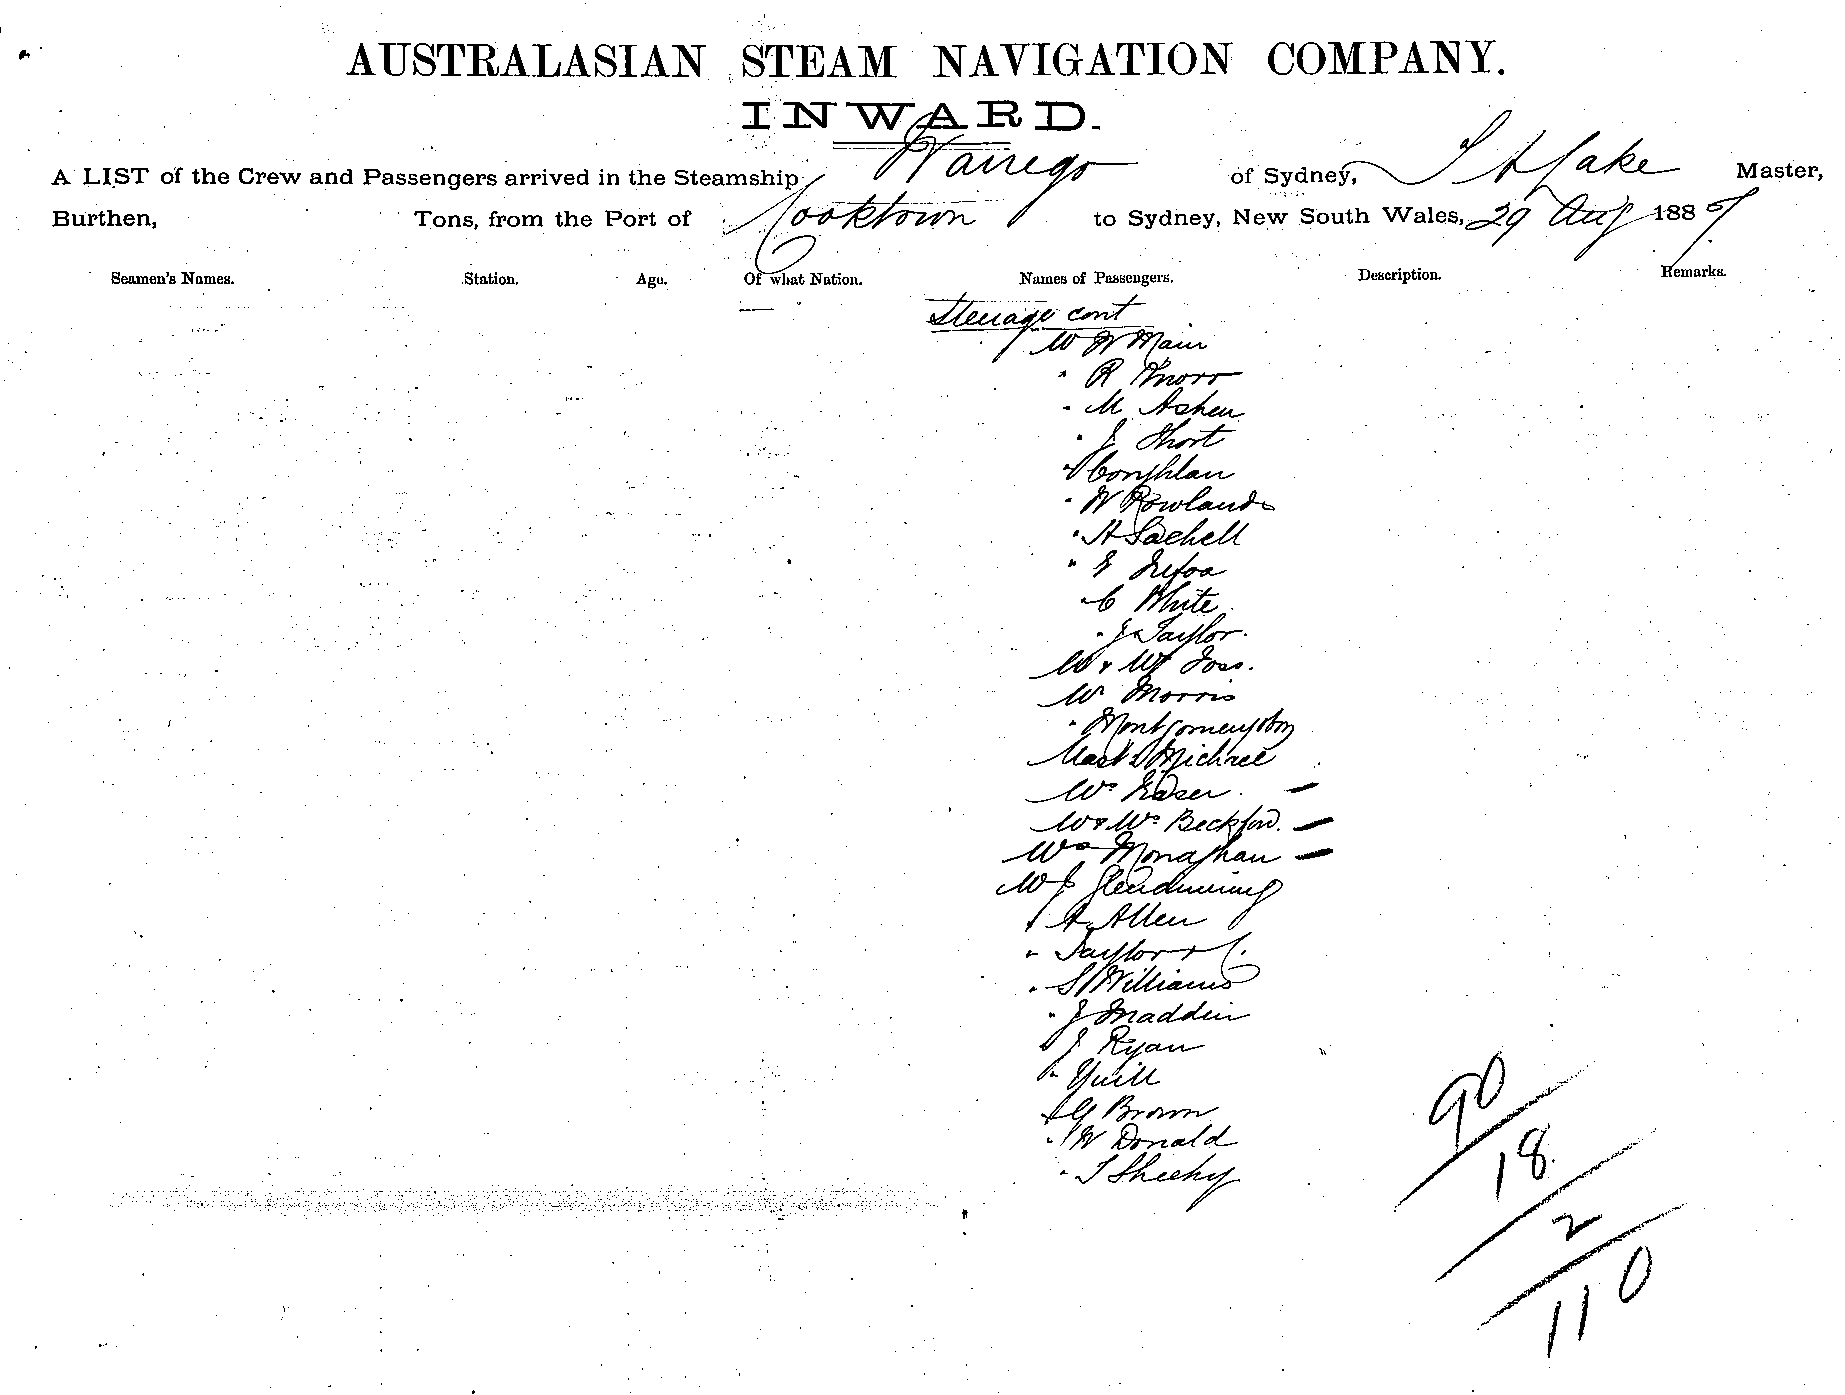 AUSTRALASIAN STEAM NAVIGATION COMPANY.
INWARD.
A LIST of the Crew and Passengers arrived in the Steamship Warrego of Sydney, Lake Master,
Burthen, Tons, from the Port of Cooktown to Sydney, New South Wales, 29 Aug 1887
Seamen's Names. Station. Age. Of what Nation. Names of Passengers. Description. Remarks.
Steerage cont
W Main
" R Knorr
" M Asher
" J Short
" Coughlan
" W Rowlands
" H Sachell
" 
" C White
" J Taylor
Foss.
Mr Morris
" Montgomery & boy
Michael
Mrs Fraser
Mr & Mrs Beckford.
Mrs Monaghan
Mr J Glendinning
" A Allen
" Taylor & C.
" S Williams
" J Maddin
" J Ryan
" Yuill
" G Brown
" W Donald
" T Sheehy
90
18
2
110